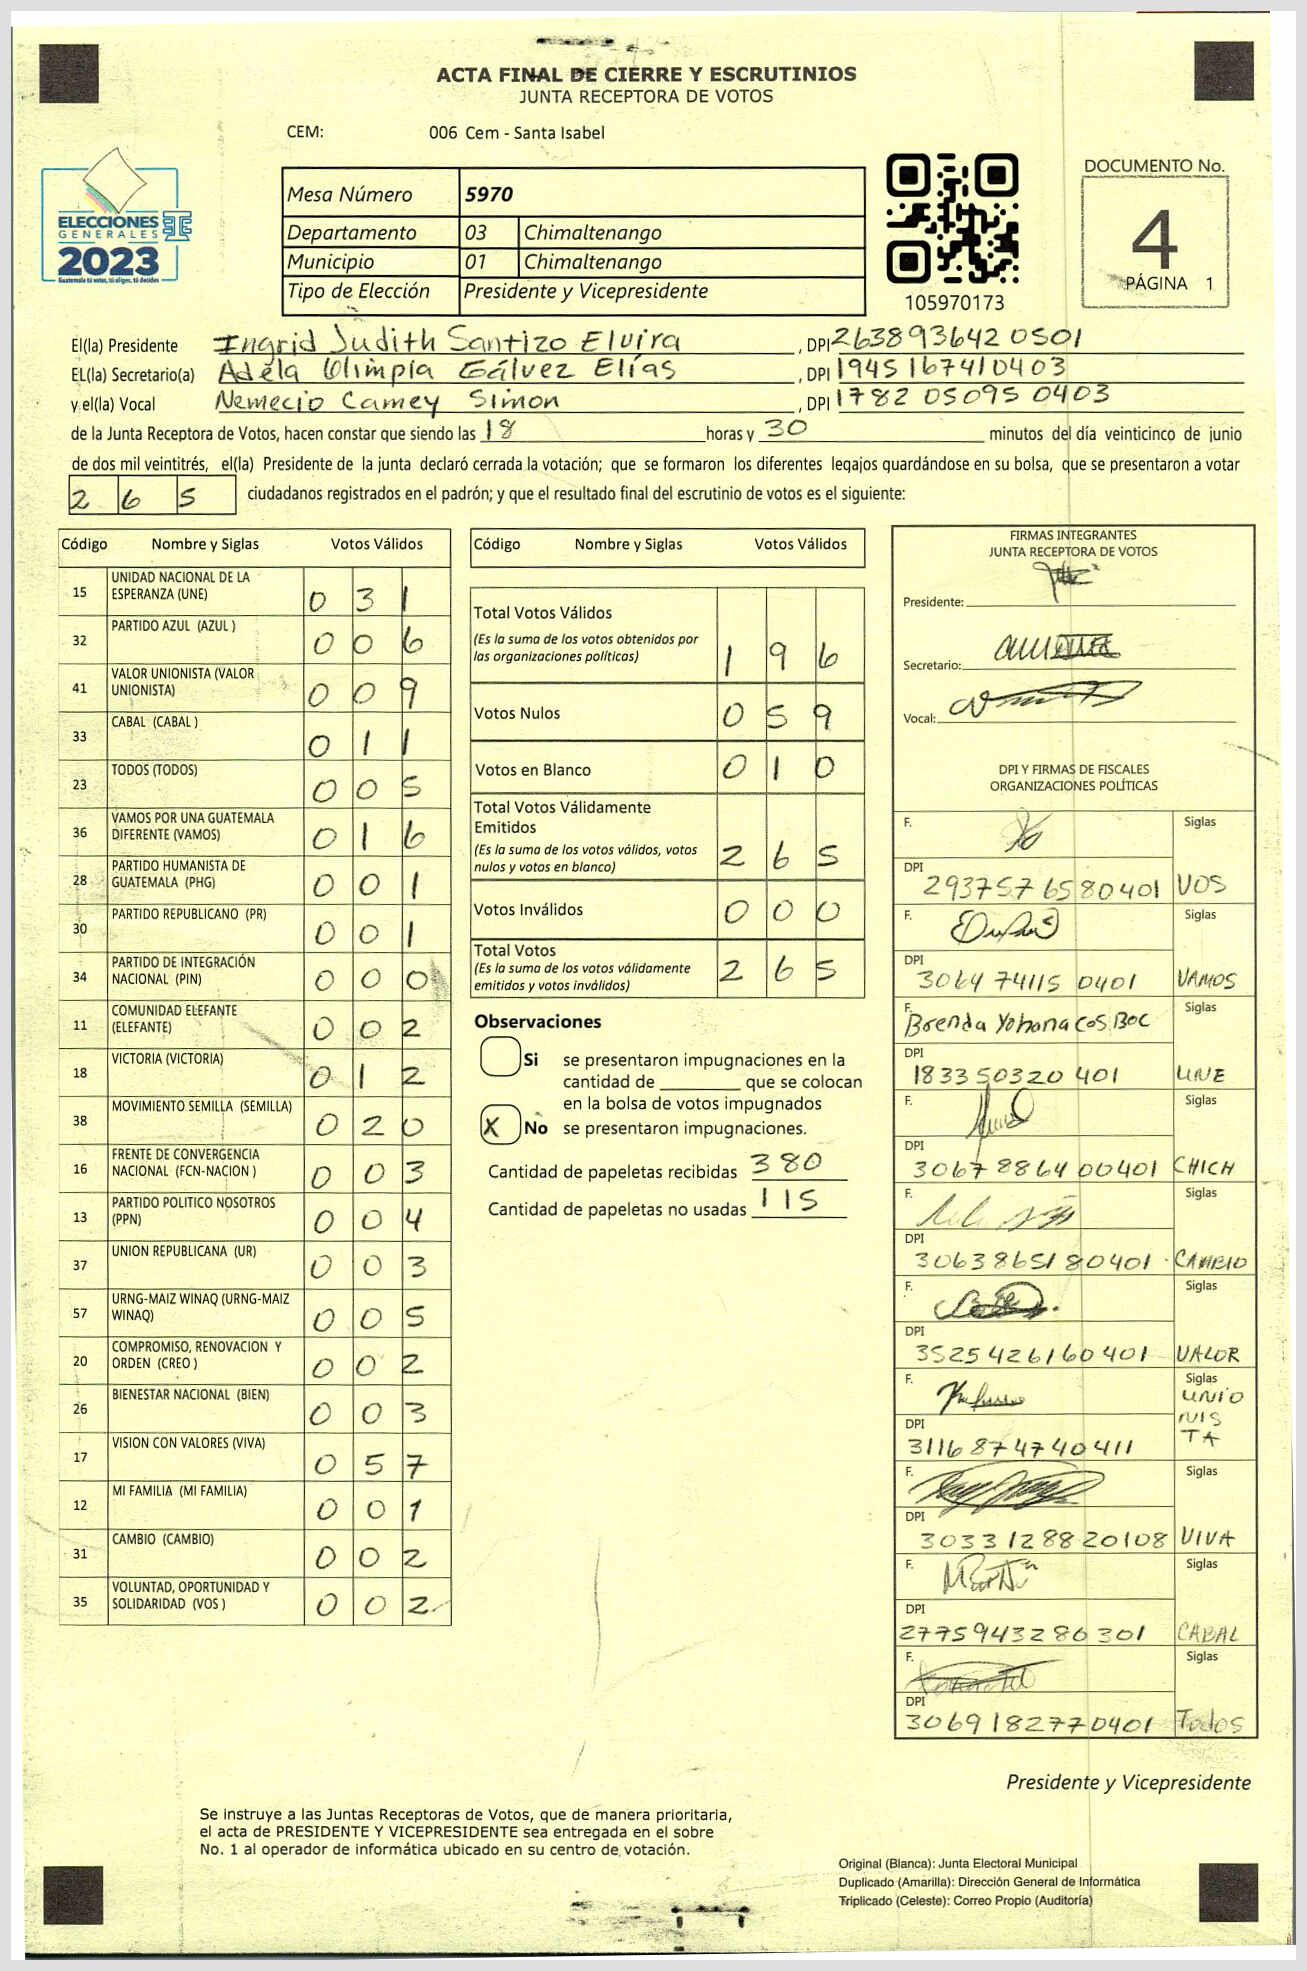 ACTA FINAL DE CIERRE Y ESCRUTINIOS
JUNTA RECEPTORA DE VOTOS
CEM: 006 Cem - Santa Isabel
ELECCIONES
GENERALES
2023
Guatemala tú votas, tú eliges, tú decides
Mesa Número 5970
Departamento 03 Chimaltenango
Municipio 01 Chimaltenango
Tipo de Elección Presidente y Vicepresidente
105970173
DOCUMENTO No.
4
PÁGINA 1
El(la) Presidente Ingrid Judith Santizo Elvira , DPI 263893642 0501
EL(la) Secretario(a) Adela Olimpia Gálvez Elías , DPI 1945 167410403
y el(la) Vocal Nemecio Camey Simon , DPI 1782 05095 0403
de la Junta Receptora de Votos, hacen constar que siendo las 18 horas y 30 minutos del día veinticinco de junio
de dos mil veintitrés, el(la) Presidente de la junta declaró cerrada la votación; que se formaron los diferentes legajos guardándose en su bolsa, que se presentaron a votar
2 6 5 ciudadanos registrados en el padrón; y que el resultado final del escrutinio de votos es el siguiente:
Código Nombre y Siglas Votos Válidos
15 UNIDAD NACIONAL DE LA ESPERANZA (UNE) 0 3 1
32 PARTIDO AZUL (AZUL ) 0 0 6
41 VALOR UNIONISTA (VALOR UNIONISTA) 0 0 9
33 CABAL (CABAL ) 0 1 1
23 TODOS (TODOS) 0 0 5
36 VAMOS POR UNA GUATEMALA DIFERENTE (VAMOS) 0 1 6
28 PARTIDO HUMANISTA DE GUATEMALA (PHG) 0 0 1
30 PARTIDO REPUBLICANO (PR) 0 0 1
34 PARTIDO DE INTEGRACIÓN NACIONAL (PIN) 0 0 0
11 COMUNIDAD ELEFANTE (ELEFANTE) 0 0 2
18 VICTORIA (VICTORIA) 0 1 2
38 MOVIMIENTO SEMILLA (SEMILLA) 0 2 0
16 FRENTE DE CONVERGENCIA NACIONAL (FCN-NACION ) 0 0 3
13 PARTIDO POLITICO NOSOTROS (PPN) 0 0 4
37 UNION REPUBLICANA (UR) 0 0 3
57 URNG-MAIZ WINAQ (URNG-MAIZ WINAQ) 0 0 5
20 COMPROMISO, RENOVACION Y ORDEN (CREO ) 0 0 2
26 BIENESTAR NACIONAL (BIEN) 0 0 3
17 VISION CON VALORES (VIVA) 0 5 7
12 MI FAMILIA (MI FAMILIA) 0 0 1
31 CAMBIO (CAMBIO) 0 0 2
35 VOLUNTAD, OPORTUNIDAD Y SOLIDARIDAD (VOS ) 0 0 2
Código Nombre y Siglas Votos Válidos
Total Votos Válidos
(Es la suma de los votos obtenidos por las organizaciones políticas) 1 9 6
Votos Nulos 0 5 9
Votos en Blanco 0 1 0
Total Votos Válidamente Emitidos
(Es la suma de los votos válidos, votos nulos y votos en blanco) 2 6 5
Votos Inválidos 0 0 0
Total Votos
(Es la suma de los votos válidamente emitidos y votos inválidos) 2 6 5
Observaciones
Si se presentaron impugnaciones en la
cantidad de ________ que se colocan
en la bolsa de votos impugnados
X No se presentaron impugnaciones.
Cantidad de papeletas recibidas 380
Cantidad de papeletas no usadas 115
FIRMAS INTEGRANTES
JUNTA RECEPTORA DE VOTOS
Presidente:
Secretario:
Vocal:
DPI Y FIRMAS DE FISCALES
ORGANIZACIONES POLÍTICAS
F. Siglas
DPI
293757 6580401 VOS
F. Siglas
DPI
3064 74115 0401 VAMOS
F. Brenda Yohana Cos Boc Siglas
DPI
183350320 401 UNE
F. Siglas
DPI
30678864 00401 CHICH
F. Siglas
DPI
3063865180401 CAMBIO
F. Siglas
DPI
3525426160401 VALOR
F. Siglas
UNIO
NIS
TA
DPI
3116874740411
F. Siglas
DPI
3033128820108 VIVA
F. Siglas
DPI
2775943280301 CABAL
F. Siglas
DPI
3069182770401 Todos
Presidente y Vicepresidente
Se instruye a las Juntas Receptoras de Votos, que de manera prioritaria,
el acta de PRESIDENTE Y VICEPRESIDENTE sea entregada en el sobre
No. 1 al operador de informática ubicado en su centro de votación.
Original (Blanca): Junta Electoral Municipal
Duplicado (Amarilla): Dirección General de Informática
Triplicado (Celeste): Correo Propio (Auditoría)